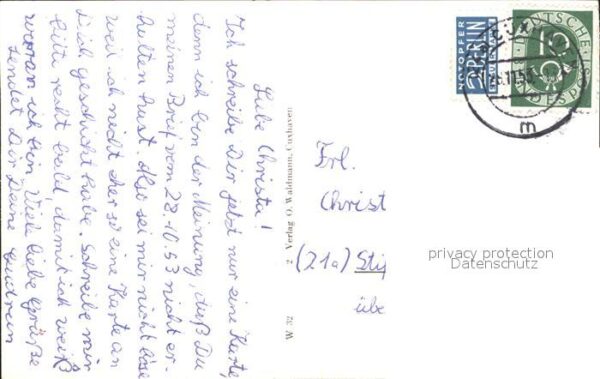 Liebe Christa!
Ich schreibe Dir jetzt nur eine Karte,
denn ich bin der Meinung, daß Du
meinen Brief vom 28.10.53 nicht er-
halten hast. Also sei mir nicht böse
weil ich nicht eher so eine Karte an
Dich geschickt habe. Schreibe mir
bitte recht bald, damit ich weiß
woran ich bin. Viele liebe Grüße
sendet Dir Deine Gudrun
W 32
2 Verlag O. Waldmann, Cuxhaven
NOTOPFER
2 BERLIN
STEUERMARKE
DEUTSCHE
10
BUNDESPOST
m
Frl.
Christ
(21a)
übe
privacy protection
Datenschutz